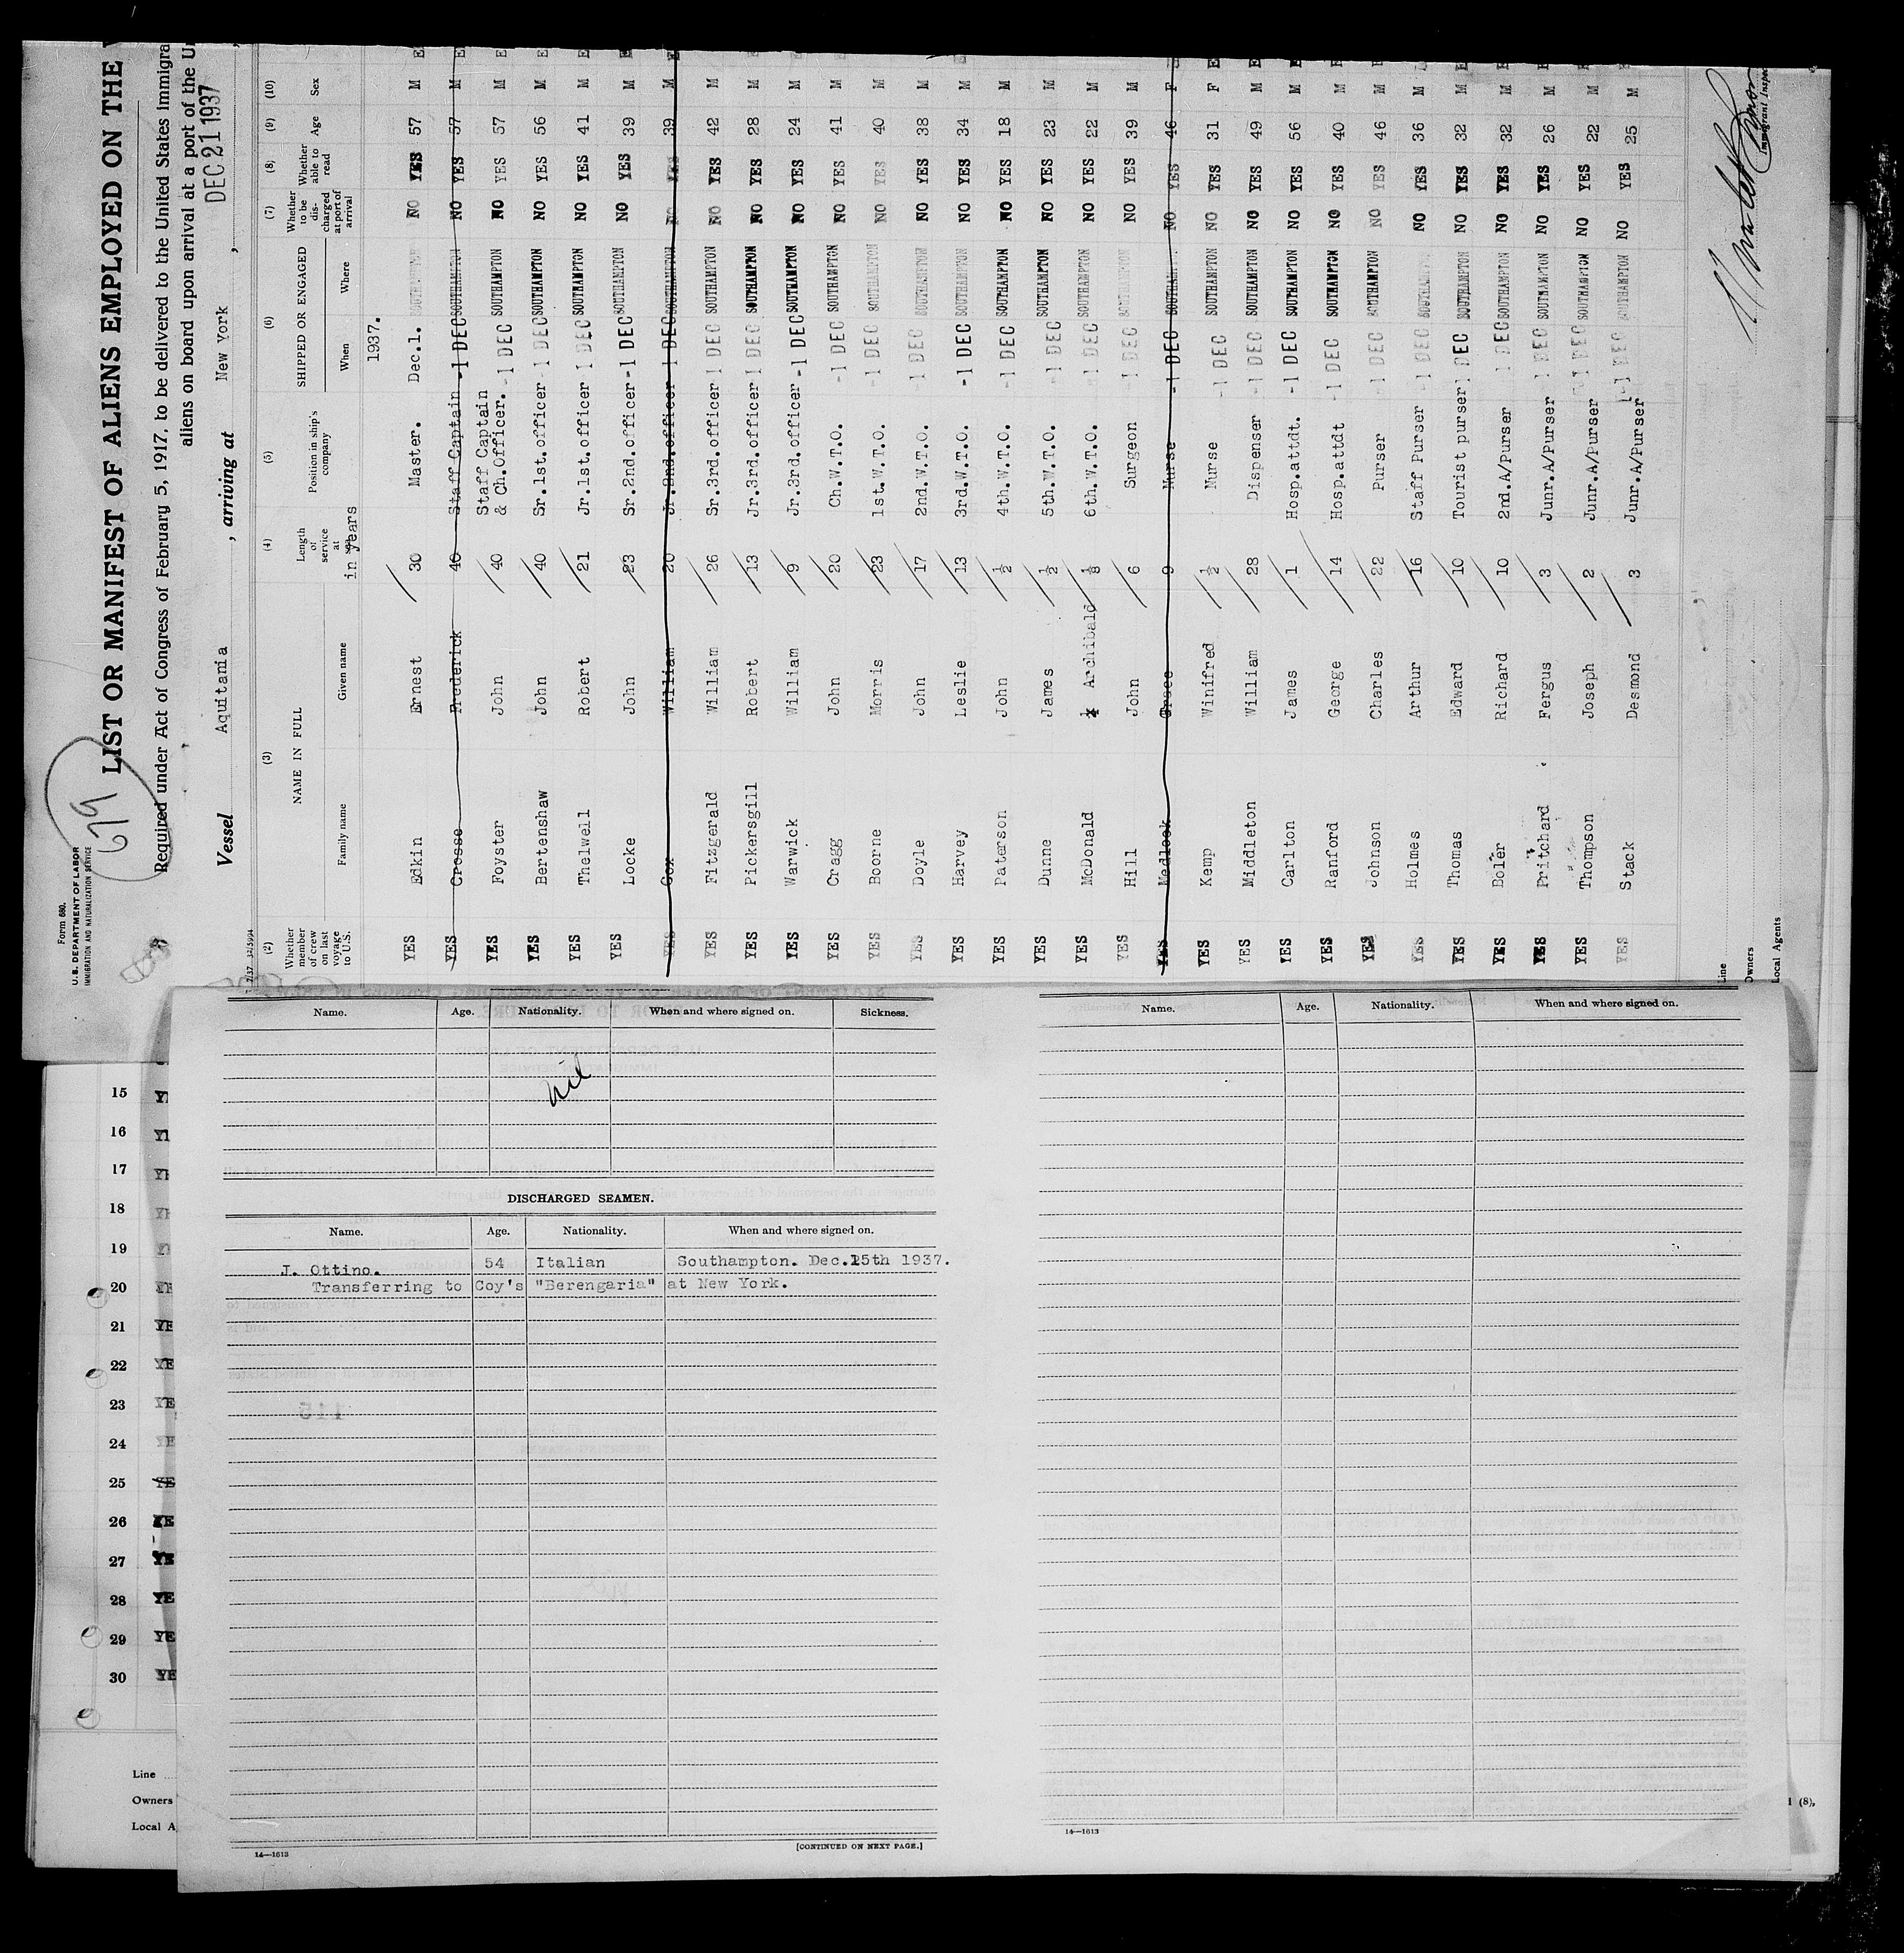 Form 680.
U.S. DEPARTMENT OF LABOR
IMMIGRATION AND NATURALIZATION SERVICE
679
LIST OR MANIFEST OF ALIENS EMPLOYED ON THE
Required under Act of Congress of February 5, 1917, to be delivered to the United States Immigra
aliens on board upon arrival at a port of the Un
Vessel Aquitania , arriving at New York , DEC 21 1937
(2) (3) (4) (5) (6) (7) (8) (9) (10)
Whether member of crew on last voyage to U.S. NAME IN FULL Family name Given name Length of service at sea in years Position in ship's company SHIPPED OR ENGAGED When Where Whether to be discharged at port of arrival Whether able to read Age Sex
1937.
YES Edkin Ernest 30 Master. Dec.1. SOUTHAMPTON NO YES 57 M E
YES Crosse Frederick 40 Staff Captain -1 DEC SOUTHAMPTON NO YES 57 M E
YES Foyster John 40 Staff Captain & Ch.Officer. -1 DEC SOUTHAMPTON NO YES 57 M E
YES Bertenshaw John 40 Sr.1st.officer -1 DEC SOUTHAMPTON NO YES 56 M E
YES Thelwell Robert 21 Jr.1st.officer 1 DEC SOUTHAMPTON NO YES 41 M E
YES Locke John 23 Sr.2nd.officer -1 DEC SOUTHAMPTON NO YES 39 M E
YES Cox William 20 Jr.2nd.officer 1 DEC SOUTHAMPTON NO YES 39 M E
YES Fitzgerald William 26 Sr.3rd.officer 1 DEC SOUTHAMPTON NO YES 42 M
YES Pickersgill Robert 13 Jr.3rd.officer 1 DEC SOUTHAMPTON NO YES 28 M E
YES Warwick William 9 Jr.3rd.officer -1 DEC SOUTHAMPTON NO YES 24 M E
YES Cragg John 20 Ch.W.T.O. -1 DEC SOUTHAMPTON NO YES 41 M
YES Boorne Morris 23 1st.W.T.O. -1 DEC SOUTHAMPTON NO YES 40 M
YES Doyle John 17 2nd.W.T.O. 1 DEC SOUTHAMPTON NO YES 38 M
YES Harvey Leslie 13 3rd.W.T.O. -1 DEC SOUTHAMPTON NO YES 34 M E
YES Paterson John ½ 4th.W.T.O. -1 DEC SOUTHAMPTON NO YES 18 M
YES Dunne James ½ 5th.W.T.O. -1 DEC SOUTHAMPTON NO YES 23 M
YES McDonald Archibald 6th.W.T.O. -1 DEC SOUTHAMPTON NO YES 22 M
YES Hill John 6 Surgeon -1 DEC SOUTHAMPTON NO YES 39 M
YES Medlock Grace 9 Nurse -1 DEC SOUTHAMPTON NO YES 46 F E
YES Kemp Winifred ½ Nurse -1 DEC SOUTHAMPTON NO YES 31 F E
YES Middleton William 28 Dispenser -1 DEC SOUTHAMPTON NO YES 49 M E
YES Carlton James 1 Hosp.attdt. -1 DEC SOUTHAMPTON NO YES 56 M E
YES Ranford George 14 Hosp.attdt -1 DEC SOUTHAMPTON NO YES 40 M E
YES Johnson Charles 22 Purser -1 DEC SOUTHAMPTON NO YES 46 M E
YES Holmes Arthur 16 Staff Purser -1 DEC SOUTHAMPTON NO YES 36 M
YES Thomas Edward 10 Tourist purser 1 DEC SOUTHAMPTON NO YES 32 M E
YES Boler Richard 10 2nd.A/Purser 1 DEC SOUTHAMPTON NO YES 32 M E
YES Pritchard Fergus 3 Junr.A/Purser 1 DEC SOUTHAMPTON NO YES 26 M E
YES Thompson Joseph 2 Junr.A/Purser 1 DEC SOUTHAMPTON NO YES 22 M E
YES Stack Desmond 3 Junr.A/Purser -1 DEC SOUTHAMPTON NO YES 25 M E
Immigrant Inspec
Line
Owners
Local Agents
Name. Age. Nationality. When and where signed on. Sickness.
nil
DISCHARGED SEAMEN.
Name. Age. Nationality. When and where signed on.
J. Ottino. 54 Italian Southampton. Dec.15th 1937.
Transferring to Coy's "Berengaria" at New York.
14—1613
[CONTINUED ON NEXT PAGE.]
Name. Age. Nationality. When and where signed on.
14—1613
15 YE
16 YE
17 YE
18 YE
19
20 YE
21 YE
22 YE
23 YE
24 YE
25 YE
26 YE
27 YE
28 YE
29 YE
30 YE
Line
Owners
Local A
(8),